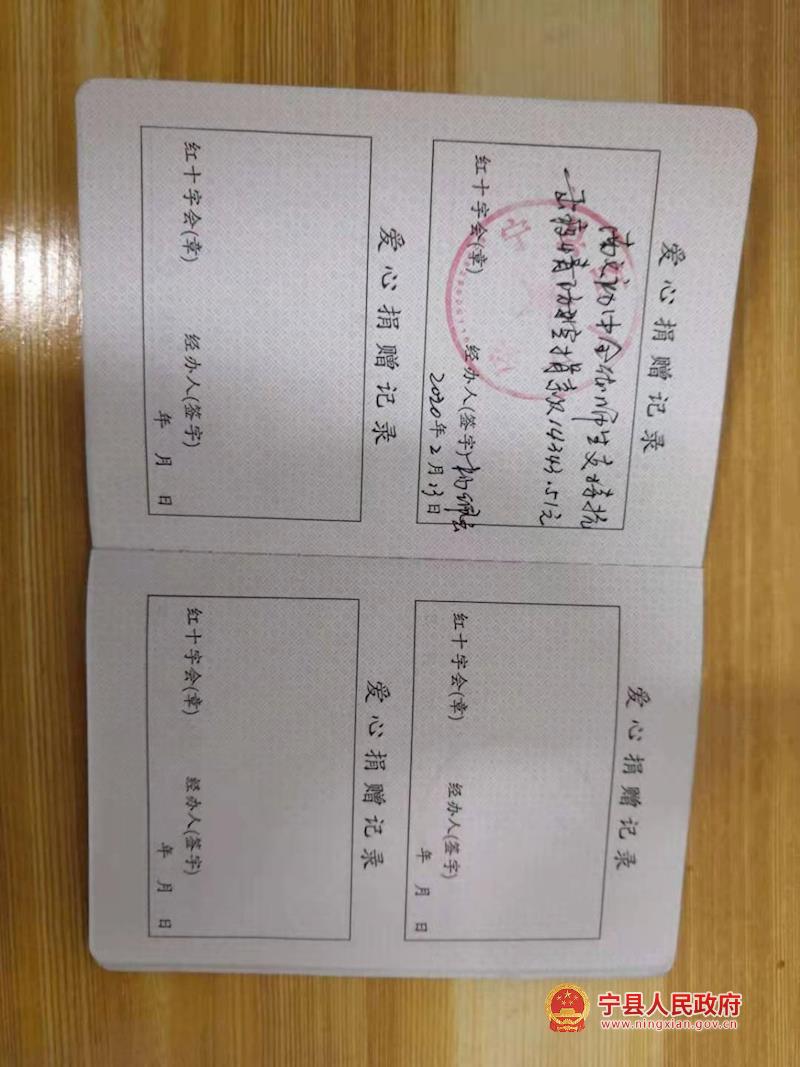 爱心捐赠记录
南义初中全体师生支持抗
击疫情防控捐款14343.51元
红十字会(章) 经办人(签字)
2020年2月13日
爱心捐赠记录
红十字会(章) 经办人(签字)
年 月 日
爱心捐赠记录
红十字会(章) 经办人(签字)
年 月 日
爱心捐赠记录
红十字会(章) 经办人(签字)
年 月 日
宁县人民政府
www.ningxian.gov.cn